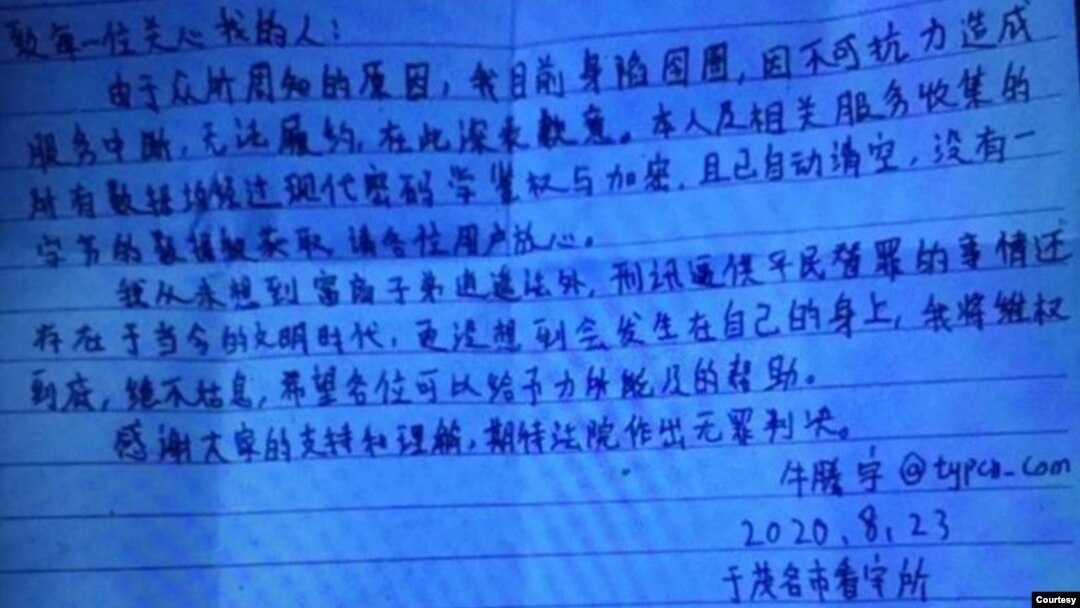 致每一位关心我的人：
由于众所周知的原因，我目前身陷囹圄，因不可抗力造成
服务中断，无法履约，在此深表歉意。本人及相关服务收集的
所有数据均经过现代密码学鉴权与加密，且已自动清空，没有一
字节的数据被获取，请各位用户放心。
我从未想到富商子弟逍遥法外，刑讯逼供平民替罪的事情还
存在于当今的文明时代，更没想到会发生在自己的身上，我将维权
到底，绝不姑息，希望各位可以给予力所能及的帮助。
感谢大家的支持和理解，期待法院作出无罪判决。
牛腾宇@typcn.com
2020.8.23
于茂名市看守所
Courtesy